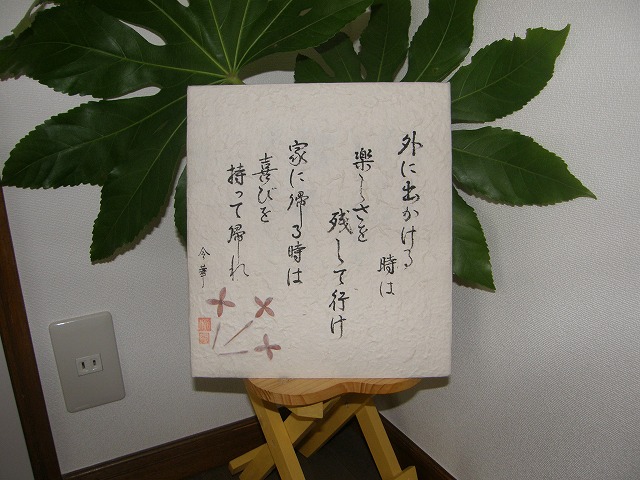 外に出かける
時は
楽しさを
残して行け
家に帰る時は
喜びを
持って帰れ
今華